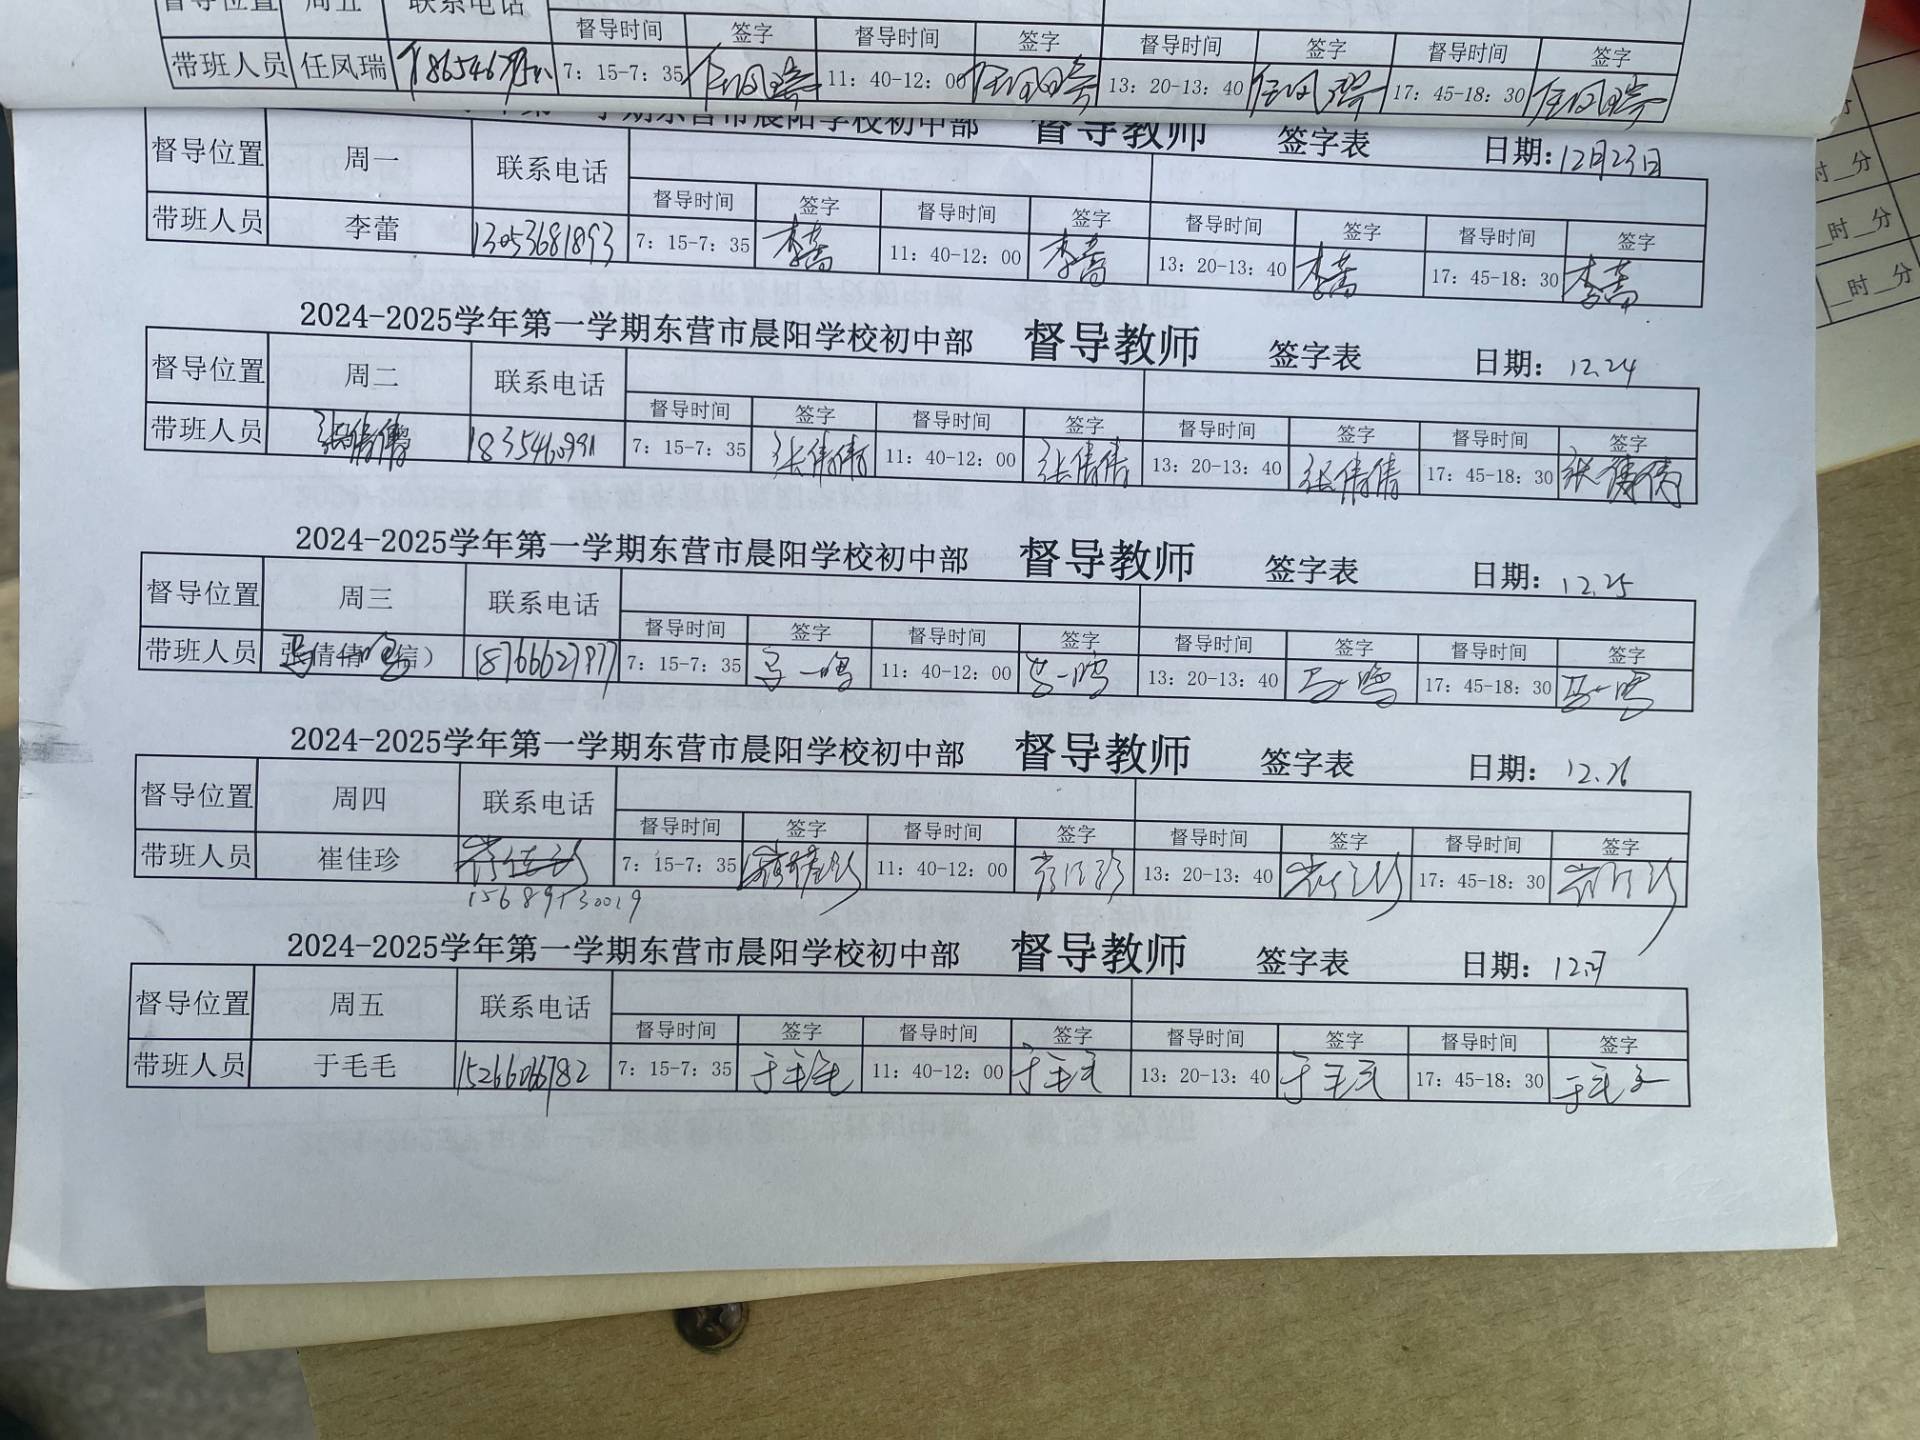 督导位置 周五 联系电话 督导时间 签字 督导时间 签字 督导时间 签字 督导时间 签字
带班人员 任凤瑞 7：15-7：35 任凤瑞 11：40-12：00 任凤瑞 13：20-13：40 任凤瑞 17：45-18：30 任凤瑞
学期东营市晨阳学校初中部 督导教师 签字表 日期：12月23日
督导位置 周一 联系电话 督导时间 签字 督导时间 签字 督导时间 签字 督导时间 签字
带班人员 李蕾 13053681893 7：15-7：35 李蕾 11：40-12：00 李蕾 13：20-13：40 李蕾 17：45-18：30 李蕾
2024-2025学年第一学期东营市晨阳学校初中部 督导教师 签字表 日期：12.24
督导位置 周二 联系电话 督导时间 签字 督导时间 签字 督导时间 签字 督导时间 签字
带班人员 张倩倩 7：15-7：35 张倩倩 11：40-12：00 张倩倩 13：20-13：40 张倩倩 17：45-18：30 张倩倩
2024-2025学年第一学期东营市晨阳学校初中部 督导教师 签字表 日期：12.25
督导位置 周三 联系电话 督导时间 签字 督导时间 签字 督导时间 签字 督导时间 签字
带班人员 18766627977 7：15-7：35 马一鸣 11：40-12：00 马一鸣 13：20-13：40 马一鸣 17：45-18：30 马一鸣
2024-2025学年第一学期东营市晨阳学校初中部 督导教师 签字表 日期：12.26
督导位置 周四 联系电话 督导时间 签字 督导时间 签字 督导时间 签字 督导时间 签字
带班人员 崔佳珍 崔佳珍 7：15-7：35 崔佳珍 11：40-12：00 崔佳珍 13：20-13：40 崔佳珍 17：45-18：30 崔佳珍
2024-2025学年第一学期东营市晨阳学校初中部 督导教师 签字表 日期：12.27
督导位置 周五 联系电话 督导时间 签字 督导时间 签字 督导时间 签字 督导时间 签字
带班人员 于毛毛 15266066782 7：15-7：35 于毛毛 11：40-12：00 于毛毛 13：20-13：40 于毛毛 17：45-18：30 于毛毛
时__分
__时__分
__时__分